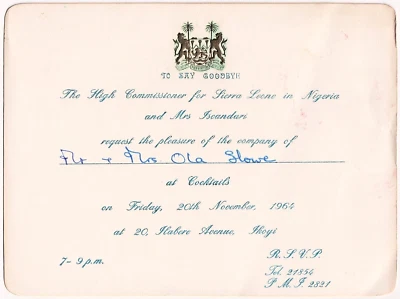 TO SAY GOODBYE
The High Commissioner for Sierra Leone in Nigeria
and Mrs Iscandari
request the pleasure of the company of
Mr + Mrs. Ola Howe
at Cocktails
on Friday, 20th November, 1964
at 20, Ilabere Avenue, Ikoyi
7-9 p.m.
R.S.V.P.
Tel. 21854
P.M.I 2821